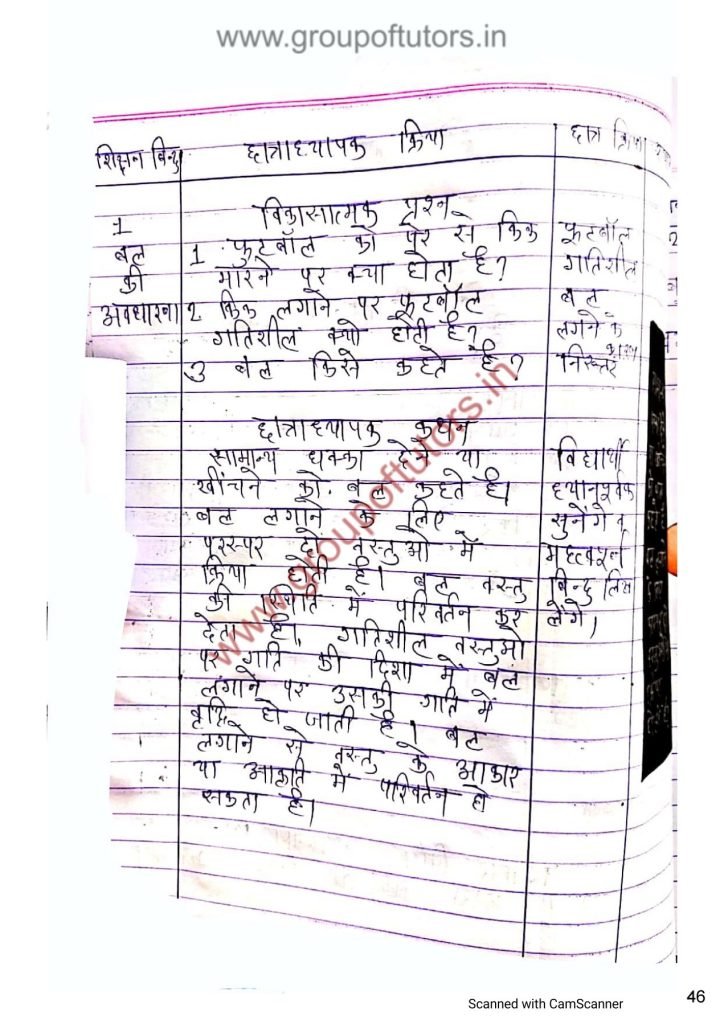 www.groupoftutors.in
शिक्षन बिन्दु
छात्राध्यापक क्रिया
छात्र क्रिया
1
बल
की
अवधारणा
विकासात्मक प्रश्न
1 फुटबॉल को पैर से किक
मारने पर क्या होता है?
2 किक लगाने पर फूटबॉल
गतिशील क्यो होती है?
3 बल किसे कहते है?
फूटबॉल
गतिशील
बल
लगने के
कारण
निरूत्तर
छात्राध्यापक कथन
सामान्य धक्का देने या
खींचने को बल कहते है।
बल लगाने के लिए
परस्पर दो वस्तुओ में
क्रिया होती है। बल वस्तु
की स्थिति में परिवर्तन कर
देता है। गतिशील वस्तुओ
पर गति की दिशा में बल
लगाने पर उसकी गति में
वृद्धि हो जाती है। बल
लगाने से वस्तु के आकार
या आकृति में परिवर्तन हो
सकता है।
विद्यार्थी
ध्यानपूर्वक
सुनेंगे व
बिन्दु लिख
लेंगे।
www.groupoftutors.in
Scanned with CamScanner
46